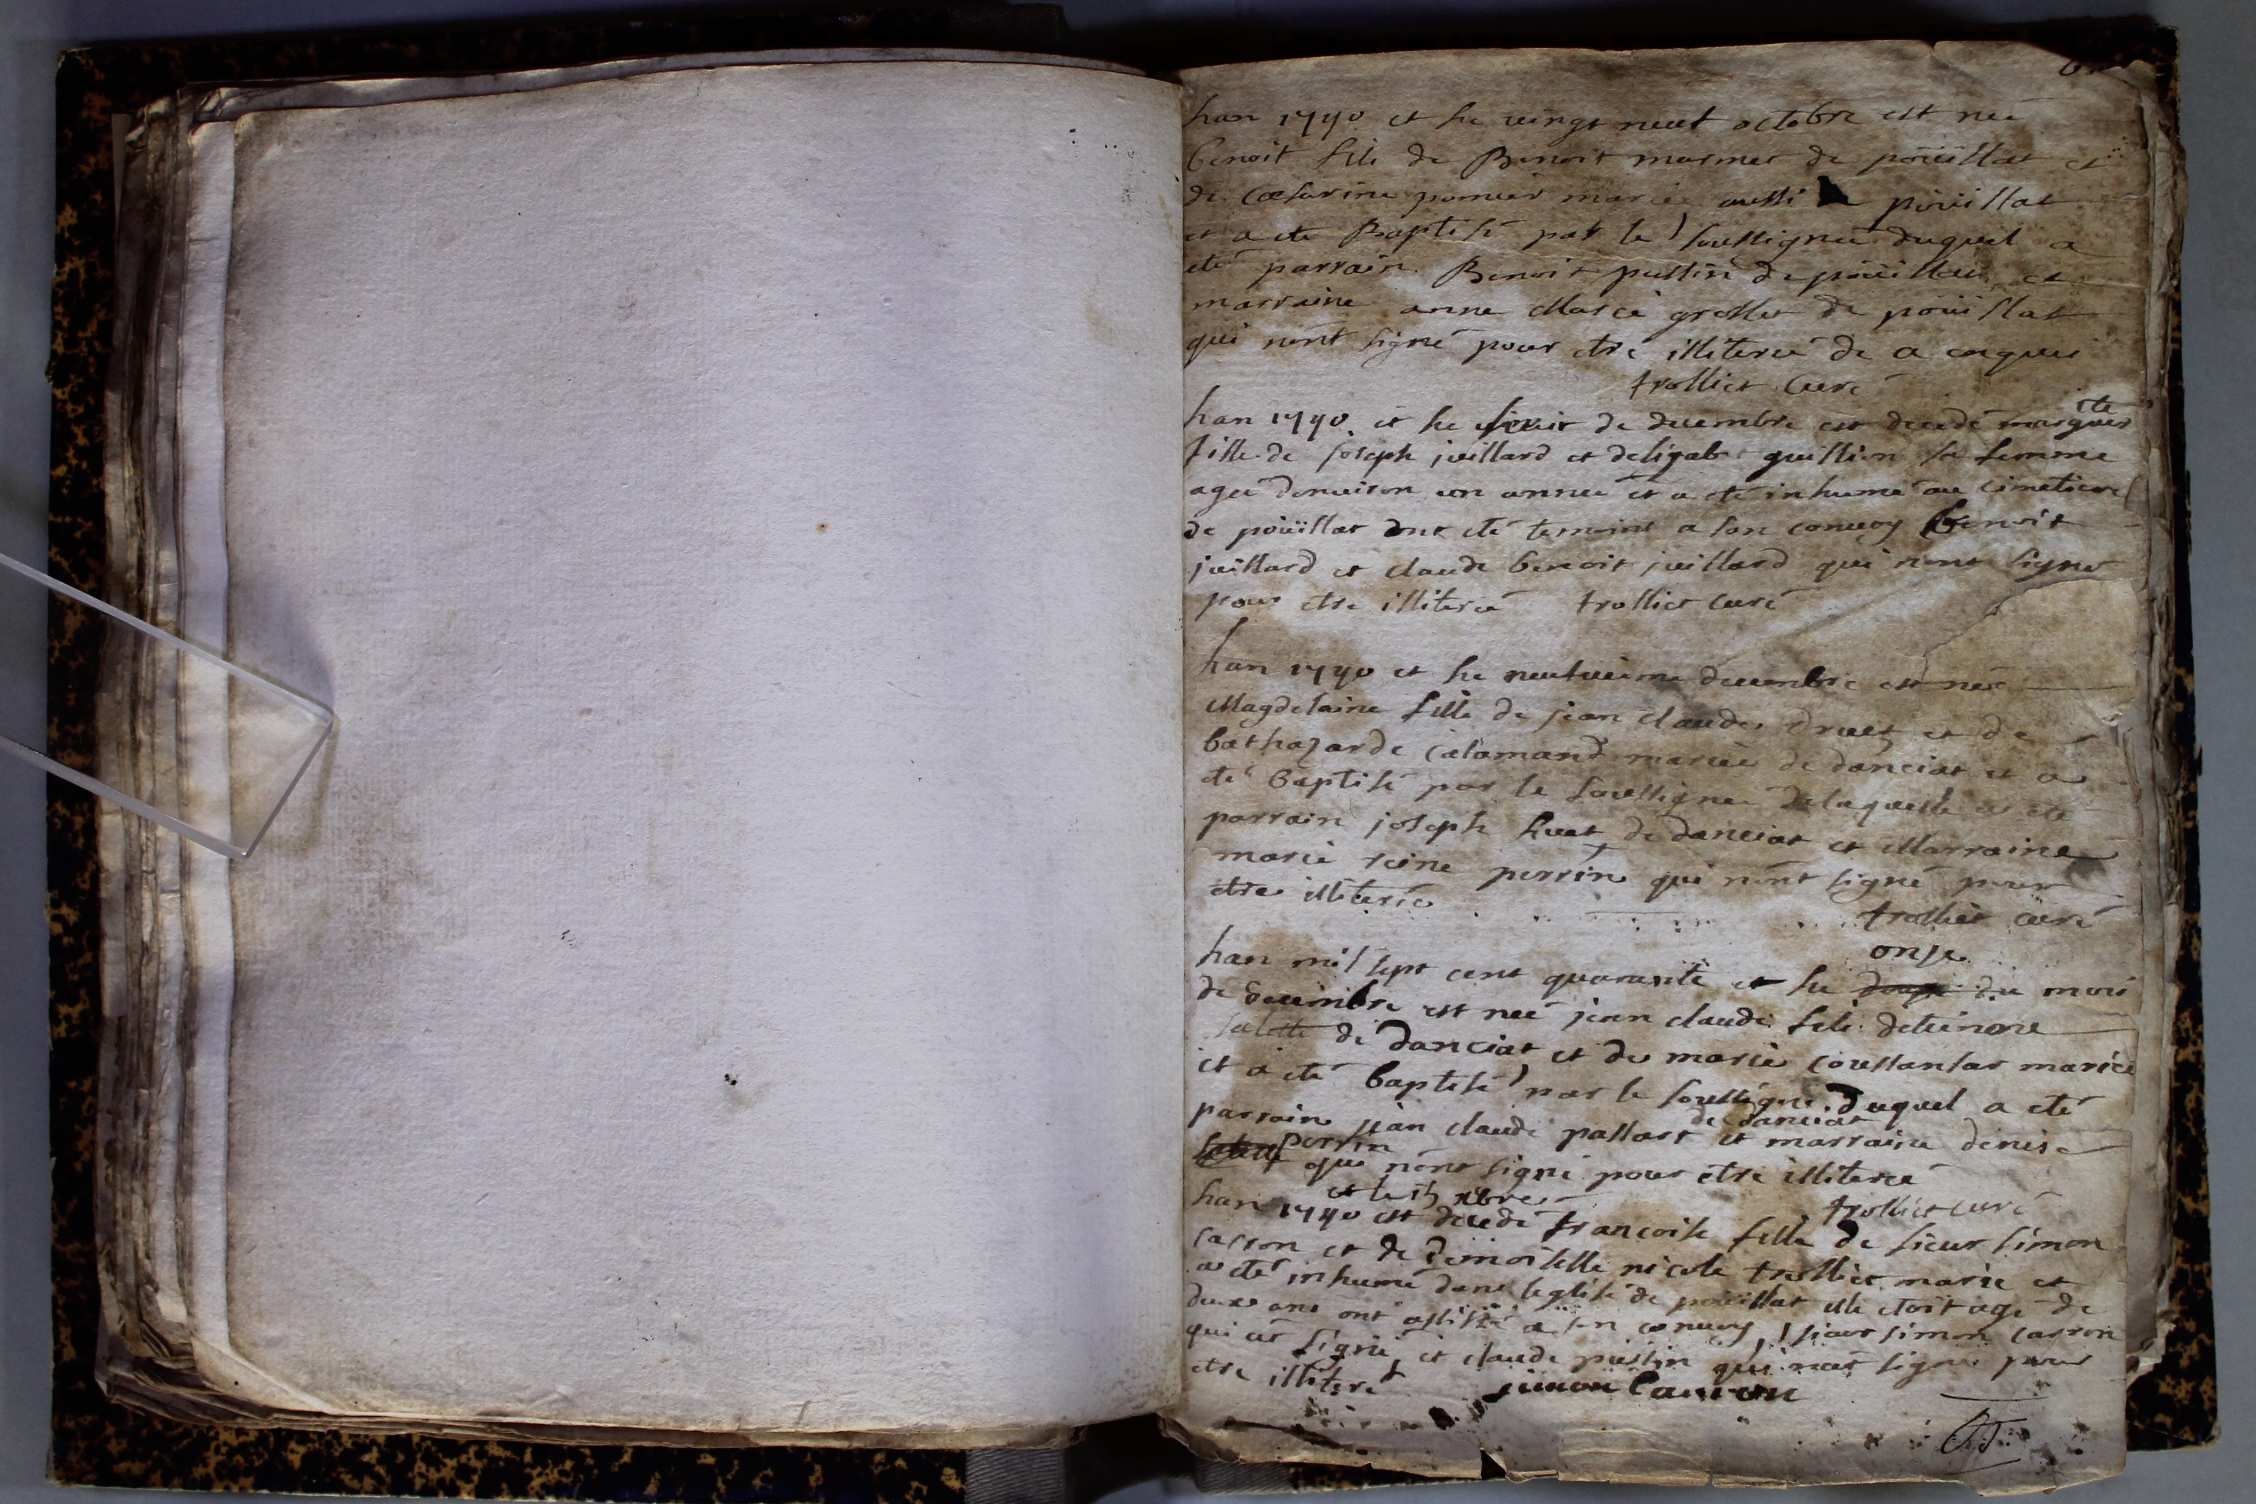 han 1740 et he vingt neuf octobre est neé
benoit fili de Benoit marmet de poüillat et
de cæsarine pomier marié aussi de poüillat
et a eté Baptisé par le soussigneé duquel a
eté parrain Benoit pussin de poüillat et
marraine anne Marie grosset de poüillat
qui nont signé pour etre illiteré de a enquis
trolliet curé
han 1740 et he huit de decembre est decedé marguer
ite
fille de joseph juillard et delisabet guillion sa femme
ageé denuiron un anneé et a eté inhumé au cimetiere
de poüillat ont eté temoins a son conuoy benoit
juillard et claude benoit juillard qui nont signé
pour etre illitereé trolliet curé
han 1740 et he neufuieme decembre est neé
Magdelaine fille de jean claude druet et de
bathazarde calamand marieé de danciat et a
eté baptisé par le soussigneé delaquelle a eté
parrain joseph huat de danciat et Marraine
marie reine perrin qui nont signé pour
etre illiteré
trolliet curé
onse
han mil sept cent quarante et he douze du mois
de decembre est neé jean claude fili detienne
de danciat et de marie coussansar marieé
et a eté baptisé par le soussigné duquel a eté
de danciat
parrain jean claude pallast et marraine denise
perrin
qui nont signé pour etre illitereé
et le 15 xbre
trolliet curé
han 1740 est decedé francoise fille de sieur simon
carron et de demoiselle nicole trolliet marié et
a eté inhumé dans leglise de poüillat elle etoit agé de
deux ans ont assisté a son conuoy sieur simon carron
qui at signé et claude pussin qui nat signé pour
etre illiteré
simon Carron